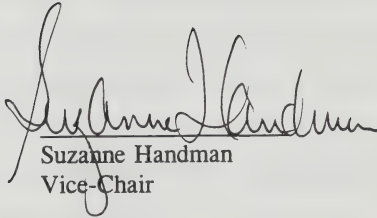 Suzanne Handman
Suzanne Handman
Vice-Chair